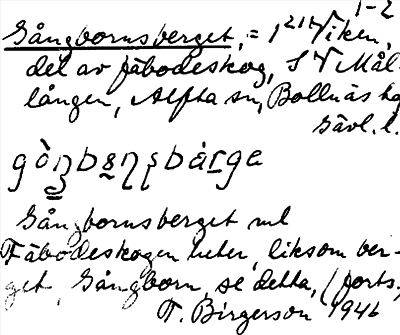 1-2
Gångbornsberget, = 1 21 N Viken,
del av fäbodeskog, S N Mål-
lången, Alfta sn, Bollnäs hd
Gävl. l.
Gångbornsberget vid
Fäbodeskogen heter, liksom ber-
get Gångborn, se detta, (forts.
F. Birgerson 1946